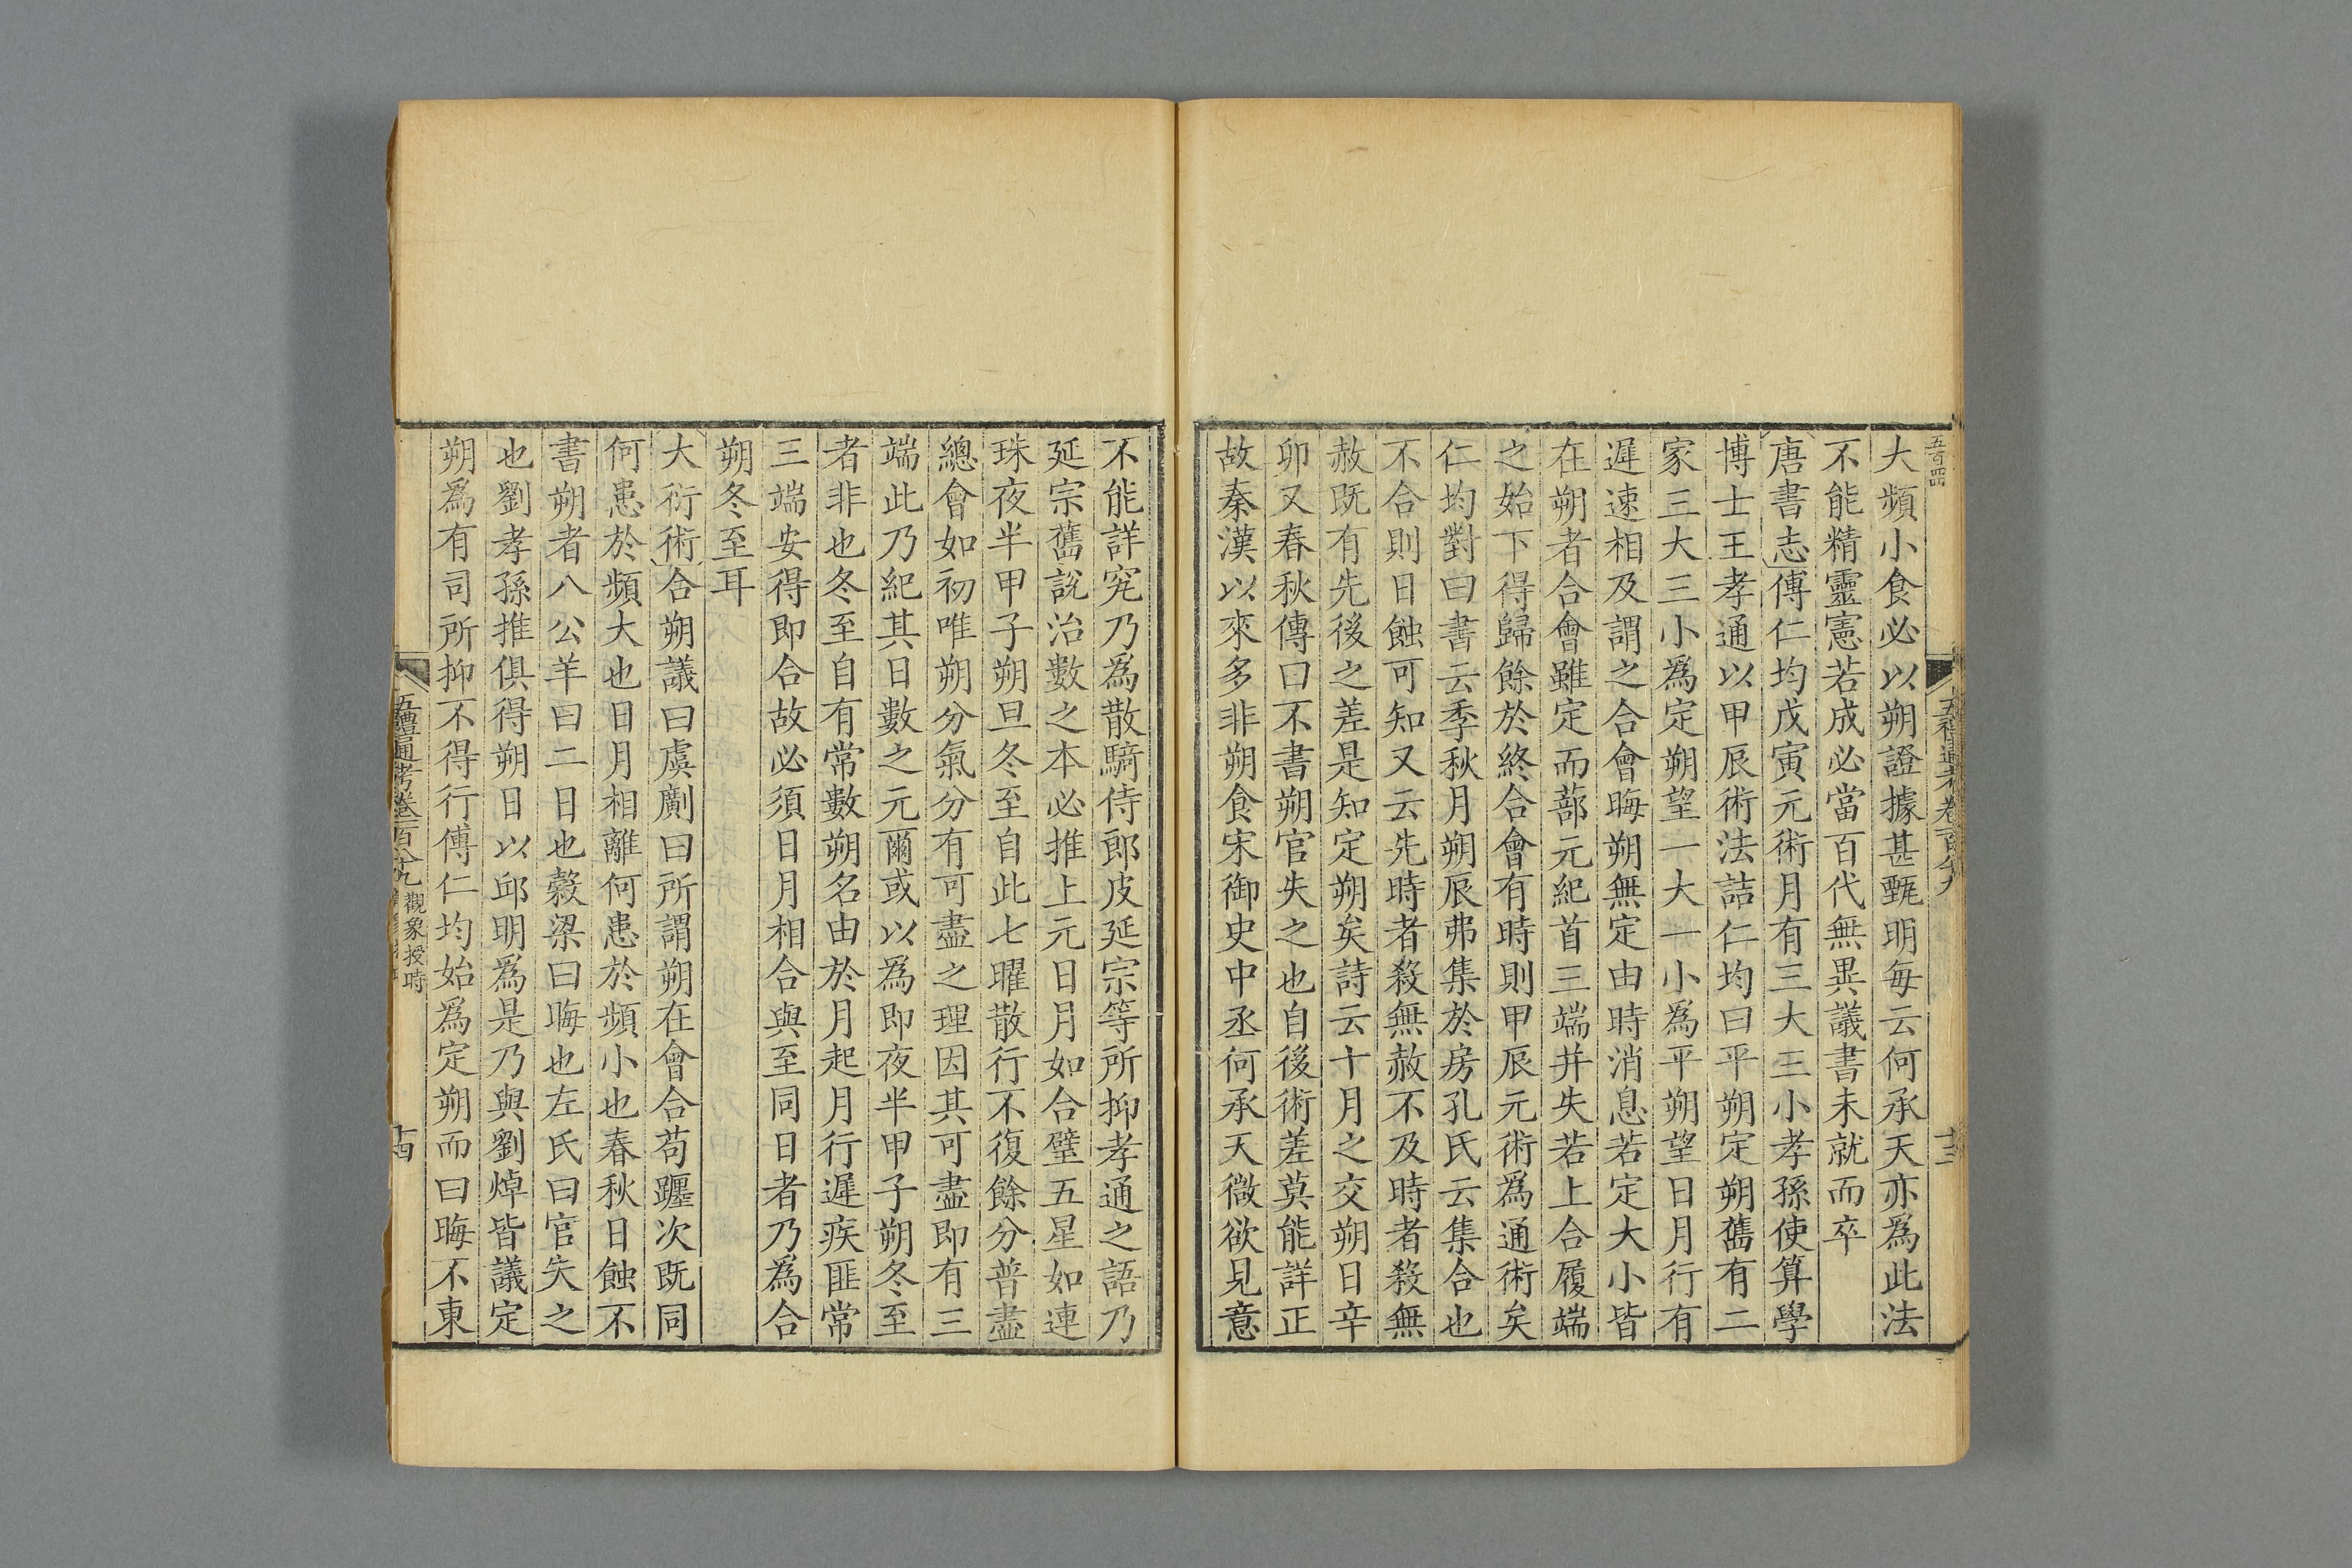 大頻小食必以朔證據甚甄明毎云何承天亦爲此法
不能精靈憲若成必當百代無異議書未就而卒
唐書志傅仁均戊寅元術月有三大三小孝孫使算學
博士王孝通以甲辰術法詰仁均曰平朔定朔舊有二
家三大三小爲定朔望一大一小爲平朔望日月行有
遲速相及謂之合會晦朔無定由時消息若定大小皆
在朔者合會雖定而蔀元紀首三端并失若上合履端
之始下得歸餘於終合會有時則甲辰元術爲通術矣
仁均對曰書云季秋月朔辰弗集於房孔氏云集合也
不合則日蝕可知又云先時者殺無赦不及時者殺無
赦既有先後之差是知定朔矣詩云十月之交朔日辛
卯又春秋傳曰不書朔官失之也自後術差莫能詳正
故秦漢以來多非朔食宋御史中丞何承天微欲見意
不能詳究乃爲散騎侍郎皮延宗等所抑孝通之語乃
延宗舊說治數之本必推上元日月如合璧五星如連
珠夜半甲子朔旦冬至自此七曜散行不復餘分普盡
總會如初唯朔分氣分有可盡之理因其可盡即有三
端此乃紀其日數之元爾或以爲即夜半甲子朔冬至
者非也冬至自有常數朔名由於月起月行遲疾匪常
三端安得即合故必須日月相合與至同日者乃爲合
朔冬至耳
大衍術合朔議曰虞𠠎曰所謂朔在會合苟躔次既同
何患於頻大也日月相離何患於頻小也春秋日蝕不
書朔者八公羊曰二日也穀梁曰晦也左氏曰官失之
也劉孝孫推俱得朔日以邱明爲是乃與劉焯皆議定
朔爲有司所抑不得行傅仁均始爲定朔而曰晦不東
五禮通考卷一百八十九
觀象授時
十四